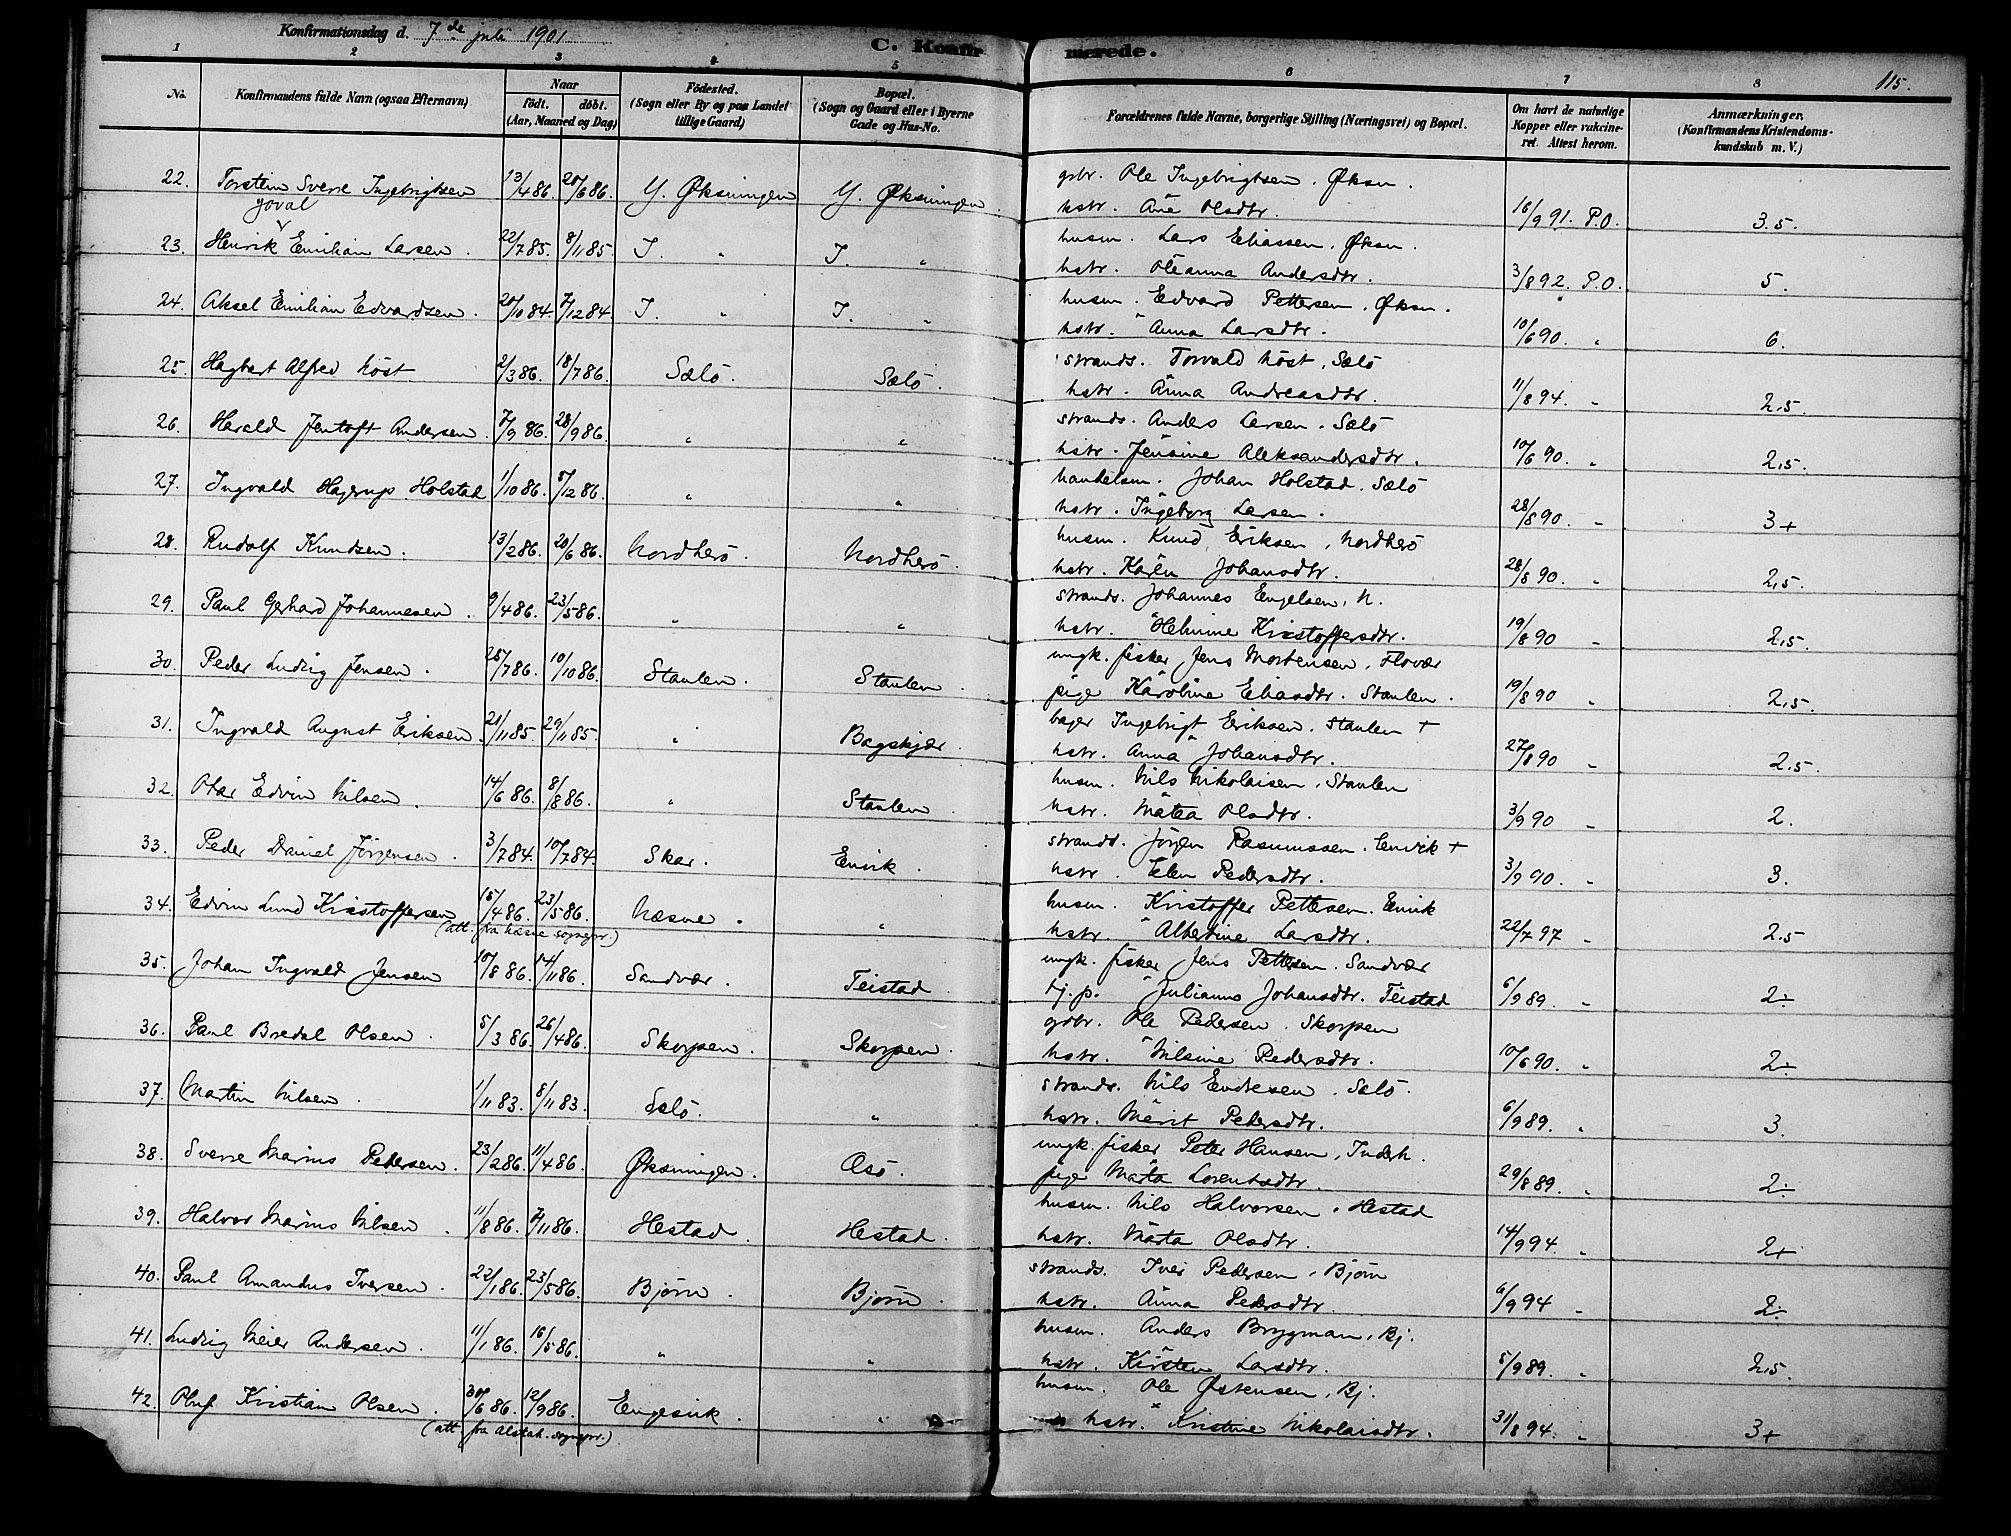 Konfirmationsdag d. 7de juli 1901
C. Konfirmerede.
115.
1 2 3 4 5 6 7 8
No. Konfirmandens fulde Navn (ogsaa Efternavn)
Naar
födt. döbt.
(Aar, Maaned og Dag)
Födested.
(Sogn eller By og paa Landet
tillige Gaard)
Bopæl.
(Sogn og Gaard eller i Byerne
Gade og Hus-No.
Forældrenes fulde Navne, borgerlige Stilling (Næringsvei) og Bopæl.
Om havt de naturlige
Kopper eller vakcine-
ret. Attest herom.
Anmærkninger.
(Konfirmandens Kristendoms-
kundskab m. V.)
22. Torstein Sverre Ingebrigtsen 13/486. 20/686. Y. Øksningen Y. Øksningen gbr. Ole Ingebrigtsen. Øksn.
hstr. Ane Olsdtr. 16/991. P.O. 3.5.
Joval
23. Henrik Emilian Larsen. 22/785. 8/1185. I. " I. " husm. Lars Eliassen, Øksn.
hstr. Oleanna Andersdtr. 3/892. P.O. 5.
24. Aksel Emilian Edvardsen. 20/1084. 7/1284. I. " I. " husm. Edvard Pettersen, Øksn.
hstr. Anna Larsdtr. 10/690. " 6.
25. Hagbart Alfred Höst. 2/386. 18/786. Sælö. Sælö. strands. Torvald Höst, Sælö
hstr. Anna Andreasdtr. 11/894. " 2.5.
26. Harald Jentoft Andersen. 7/986. 28/986. " " strands. Anders Larsen. Sælö
hstr. Jensine Aleksandersdtr. 10/690. " 2.5.
27. Ingvald Hagerup Holstad 1/1086. 5/1286. " " handelsm. Johan Holstad. Sælö
hstr. Ingeborg Larsen. 28/890. " 3+
28. Rudolf Knudsen. 13/286. 20/686. Nordherö. Nordherö. husm. Knud Eriksen, Nordherö
hstr. Karen Johansdtr. 28/890. " 2.5.
29. Paul Gerhard Johannesen. 9/486. 23/586. " " strands. Johannes Engelsen, N.
hstr. Helmine Kristoffersdtr. 19/890 " 2.5.
30. Peder Ludvig Jensen. 25/786. 10/1086. Staulen. Staulen. ungk. fisker Jens Mortensen, Flovær
pige Karoline Eliasdtr. Staulen. 19/890 " 2.5.
31. Ingvald August Eriksen. 21/1185. 29/1185. " Bagskjær. bager Ingebrigt Eriksen, Staulen +
hstr. Anna Johansdtr. 27/890 " 2.5.
32. Olai Edvin Nilsen. 14/686. 8/886. " Staulen husm. Nils Nikolaisen, Staulen
hstr. Matea Olsdtr. 3/990 " 2.
33. Peder Daniel Jörgensen. 3/784. 10/784. Skar. Envik. strands. Jörgen Rasmussen. Envik +
hstr. Elen Pedersdtr. 3/990. " 3.
34. Edvin Lund Kristoffersen 15/486. 23/586. Næsne. " husm. Kristoffer Pettersen. Envik
(att. fra Næsne sognepr.)
hstr. Albertine Larsdtr. 22/797 " 2.5
35. Johan Ingvald Jensen 10/886. 14/1186. Sandvær. Teistad ungk. fisker Jens Pettersen. Sandvær
tj. p. Julianna Johansdtr. Teistad 6/989. " 2÷
36. Paul Bredal Olsen. 5/386. 26/486. Skorpen. Skorpen. gbr. Ole Pedersen. Skorpen
hstr. Nilsine Pedersdtr. 10/690. " 2÷
37. Martin Nilsen. 1/1183. 8/1183. Sælö. " strands. Nils Endresen. Sælö.
hstr. Marit Pedersdtr. 6/989. " 3.
38. Sverre Marius Petersen. 23/286. 11/486. Øksningen. Æsö. ungk. fisker Peter Hansen, Inderh.
pige Marta Lorentsdtr. 29/889. " 2÷
39. Halvor Marius Nilsen. 11/886. 7/1186. Hestad. Hestad. husm. Nils Halvorsen, Hestad
hstr. Marta Olsdtr. 14/994. " 2+
40. Paul Amandus Iversen. 22/186. 23/586. Bjørn. Bjørn. strands. Iver Pedersen, Bjørn
hstr. Anna Pedersdtr. 6/994 " 2÷
41. Ludvig Meier Andersen. 11/186. 16/586. " " husm. Anders Brygman, Bj.
hstr. Kirsten Larsdtr. 5/989. " 2.5
42. Oluf Kristian Olsen. 30/686. 12/986. Engesvik. " husm. Ole Østensen, Bj.
(att. fra Alstah. sognepr.)
hstr. Kristine Nikolaisdtr. 31/894. " 3+